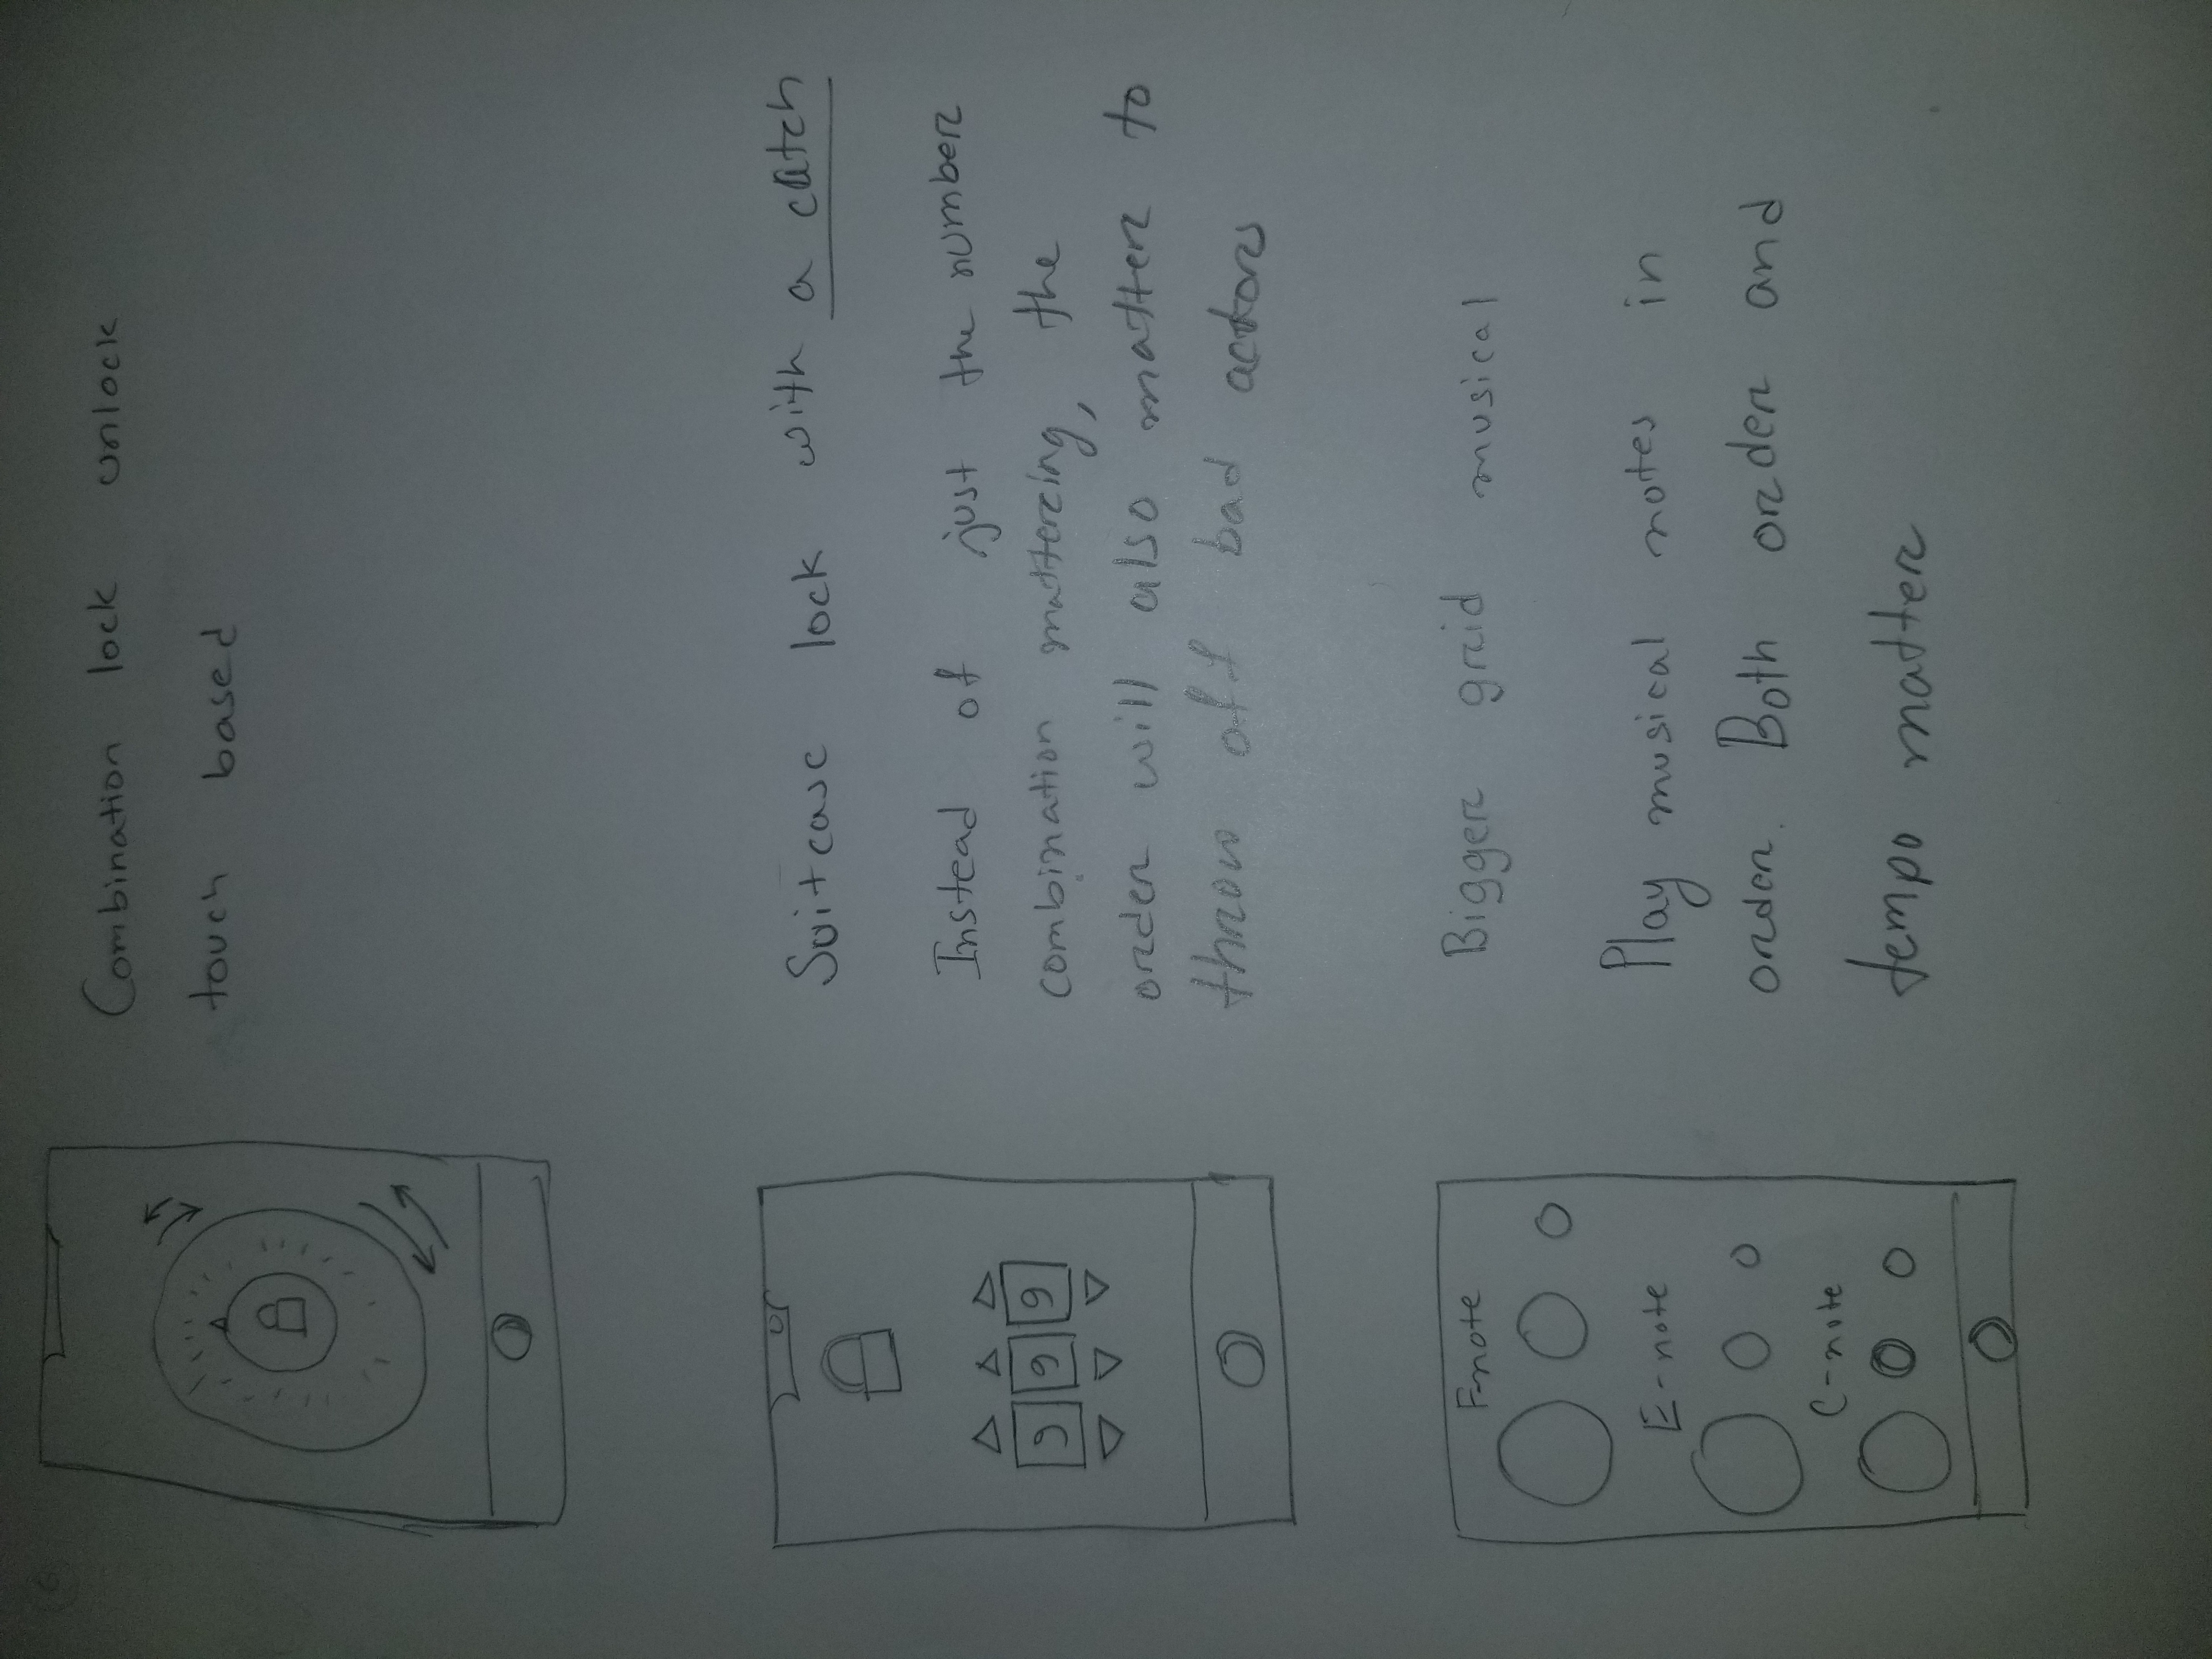 Combination lock unlock
touch based
Suitcase lock with a catch
9 9 9
Instead of just the number
combination mattering, the
order will also matter to
throw off bad actors
F-note
Bigger grid musical
E-note
Play musical notes in
order. Both order and
C-note
tempo matter